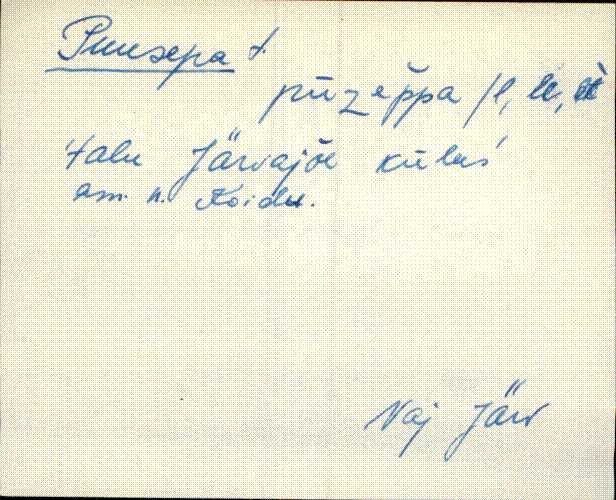 Puusepa t.
pūzeppa /l, le, lt
talu Järvajõe külas
am. n. Koidu.
Vaj Järv